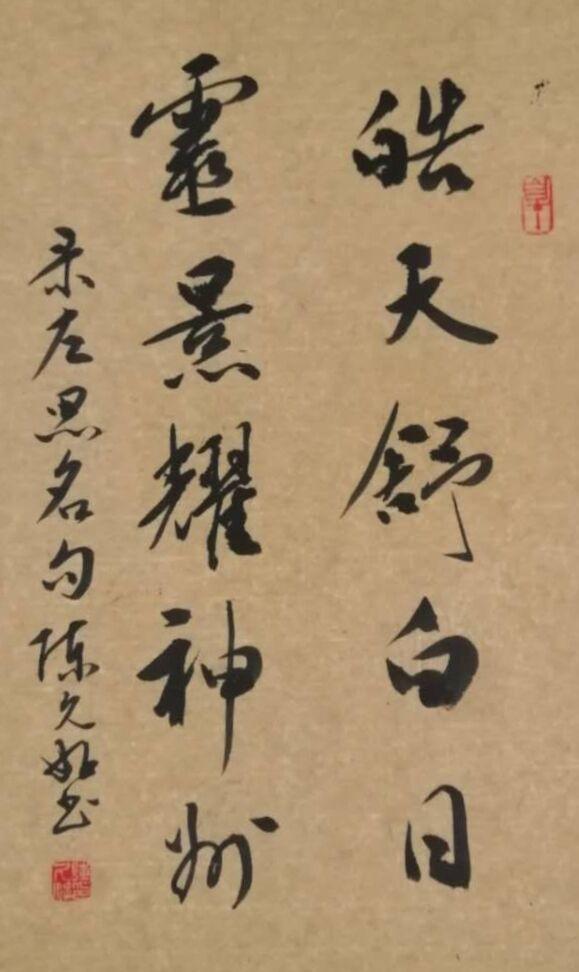 皓天舒白日
靈景耀神州
录左思名句陈久妣书